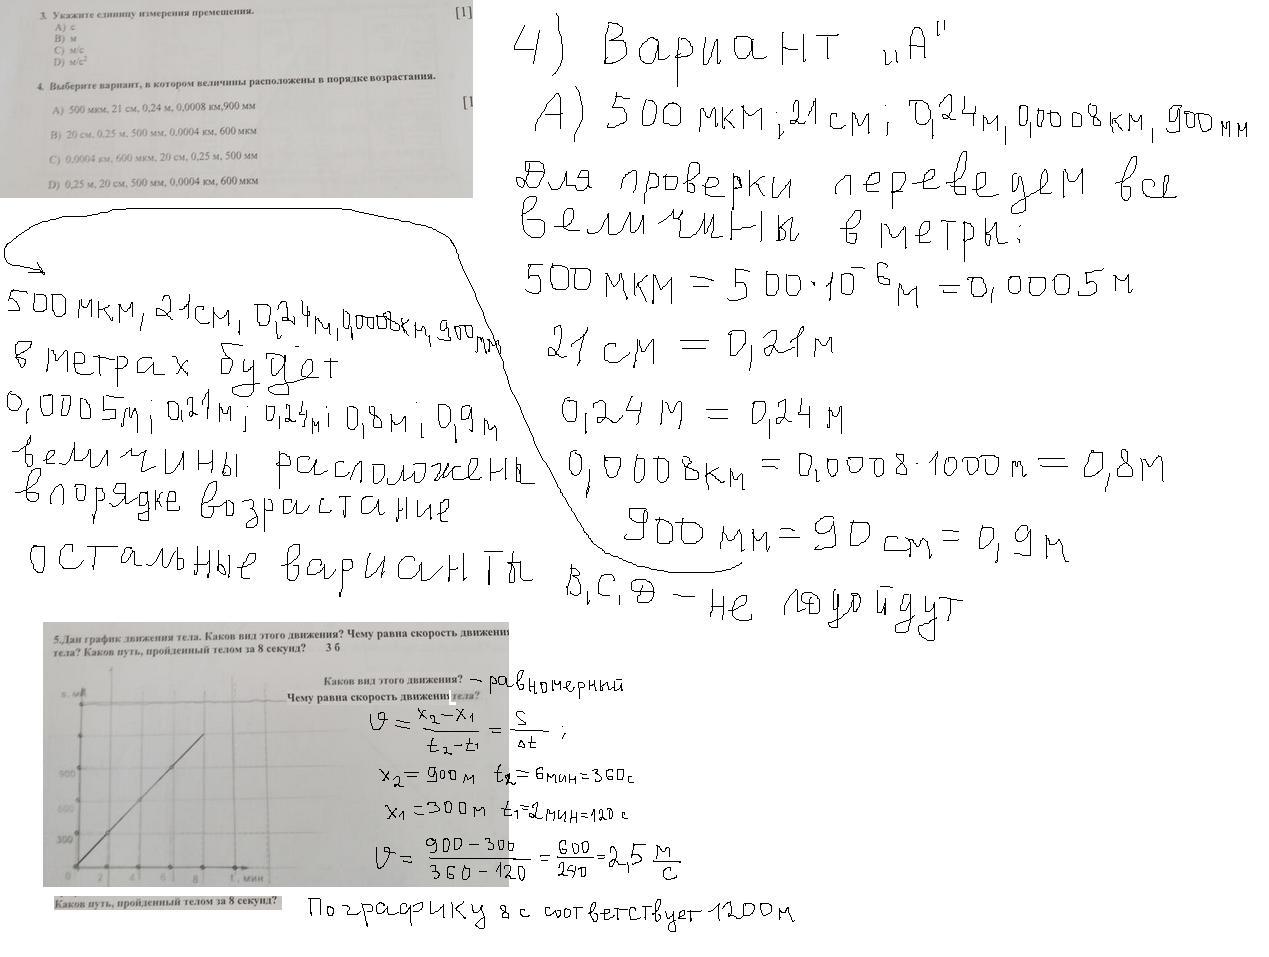 3. Укажите единицу измерения премешения. [1]
A) с
B) м
C) м/с
D) м/с²
4. Выберите вариант, в котором величины расположены в порядке возрастания.
[1
A) 500 мкм, 21 см, 0,24 м, 0,0008 км,900 мм
B) 20 см, 0,25 м, 500 мм, 0,0004 км, 600 мкм
C) 0,0004 км, 600 мкм, 20 см, 0,25 м, 500 мм
D) 0,25 м, 20 см, 500 мм, 0,0004 км, 600 мкм
4) Вариант „А"
А) 500 мкм; 21 см; 0,24м, 0,0008км, 900 мм
Для проверки переведем все
величины в метры:
500 мкм = 500·10⁻⁶ м = 0,0005 м
21 см = 0,21 м
0,24 м = 0,24 м
0,0008км = 0,0008·1000 м = 0,8м
900 мм = 90 см = 0,9м
500 мкм, 21см, 0,24м, 0,0008км, 900мм
в метрах будет
0,0005м; 0,21м; 0,24м; 0,8м; 0,9м
величины расположены
в порядке возрастание
остальные варианты В, С, D – не подойдут
5.Дан график движения тела. Каков вид этого движения? Чему равна скорость движения
тела? Каков путь, пройденный телом за 8 секунд? 3 б
Каков вид этого движения? – равномерный
Чему равна скорость движения тела?
s, м
900
600
300
0 2 4 6 8 t, мин
υ = (x₂ – x₁)/(t₂ – t₁) = S/Δt ;
x₂ = 900 м t₂ = 6мин = 360с
x₁ = 300 м t₁ = 2мин = 120 с
υ = (900 – 300)/(360 – 120) = 600/240 = 2,5 м/с
Каков путь, пройденный телом за 8 секунд? По графику 8 с соответствует 1200м